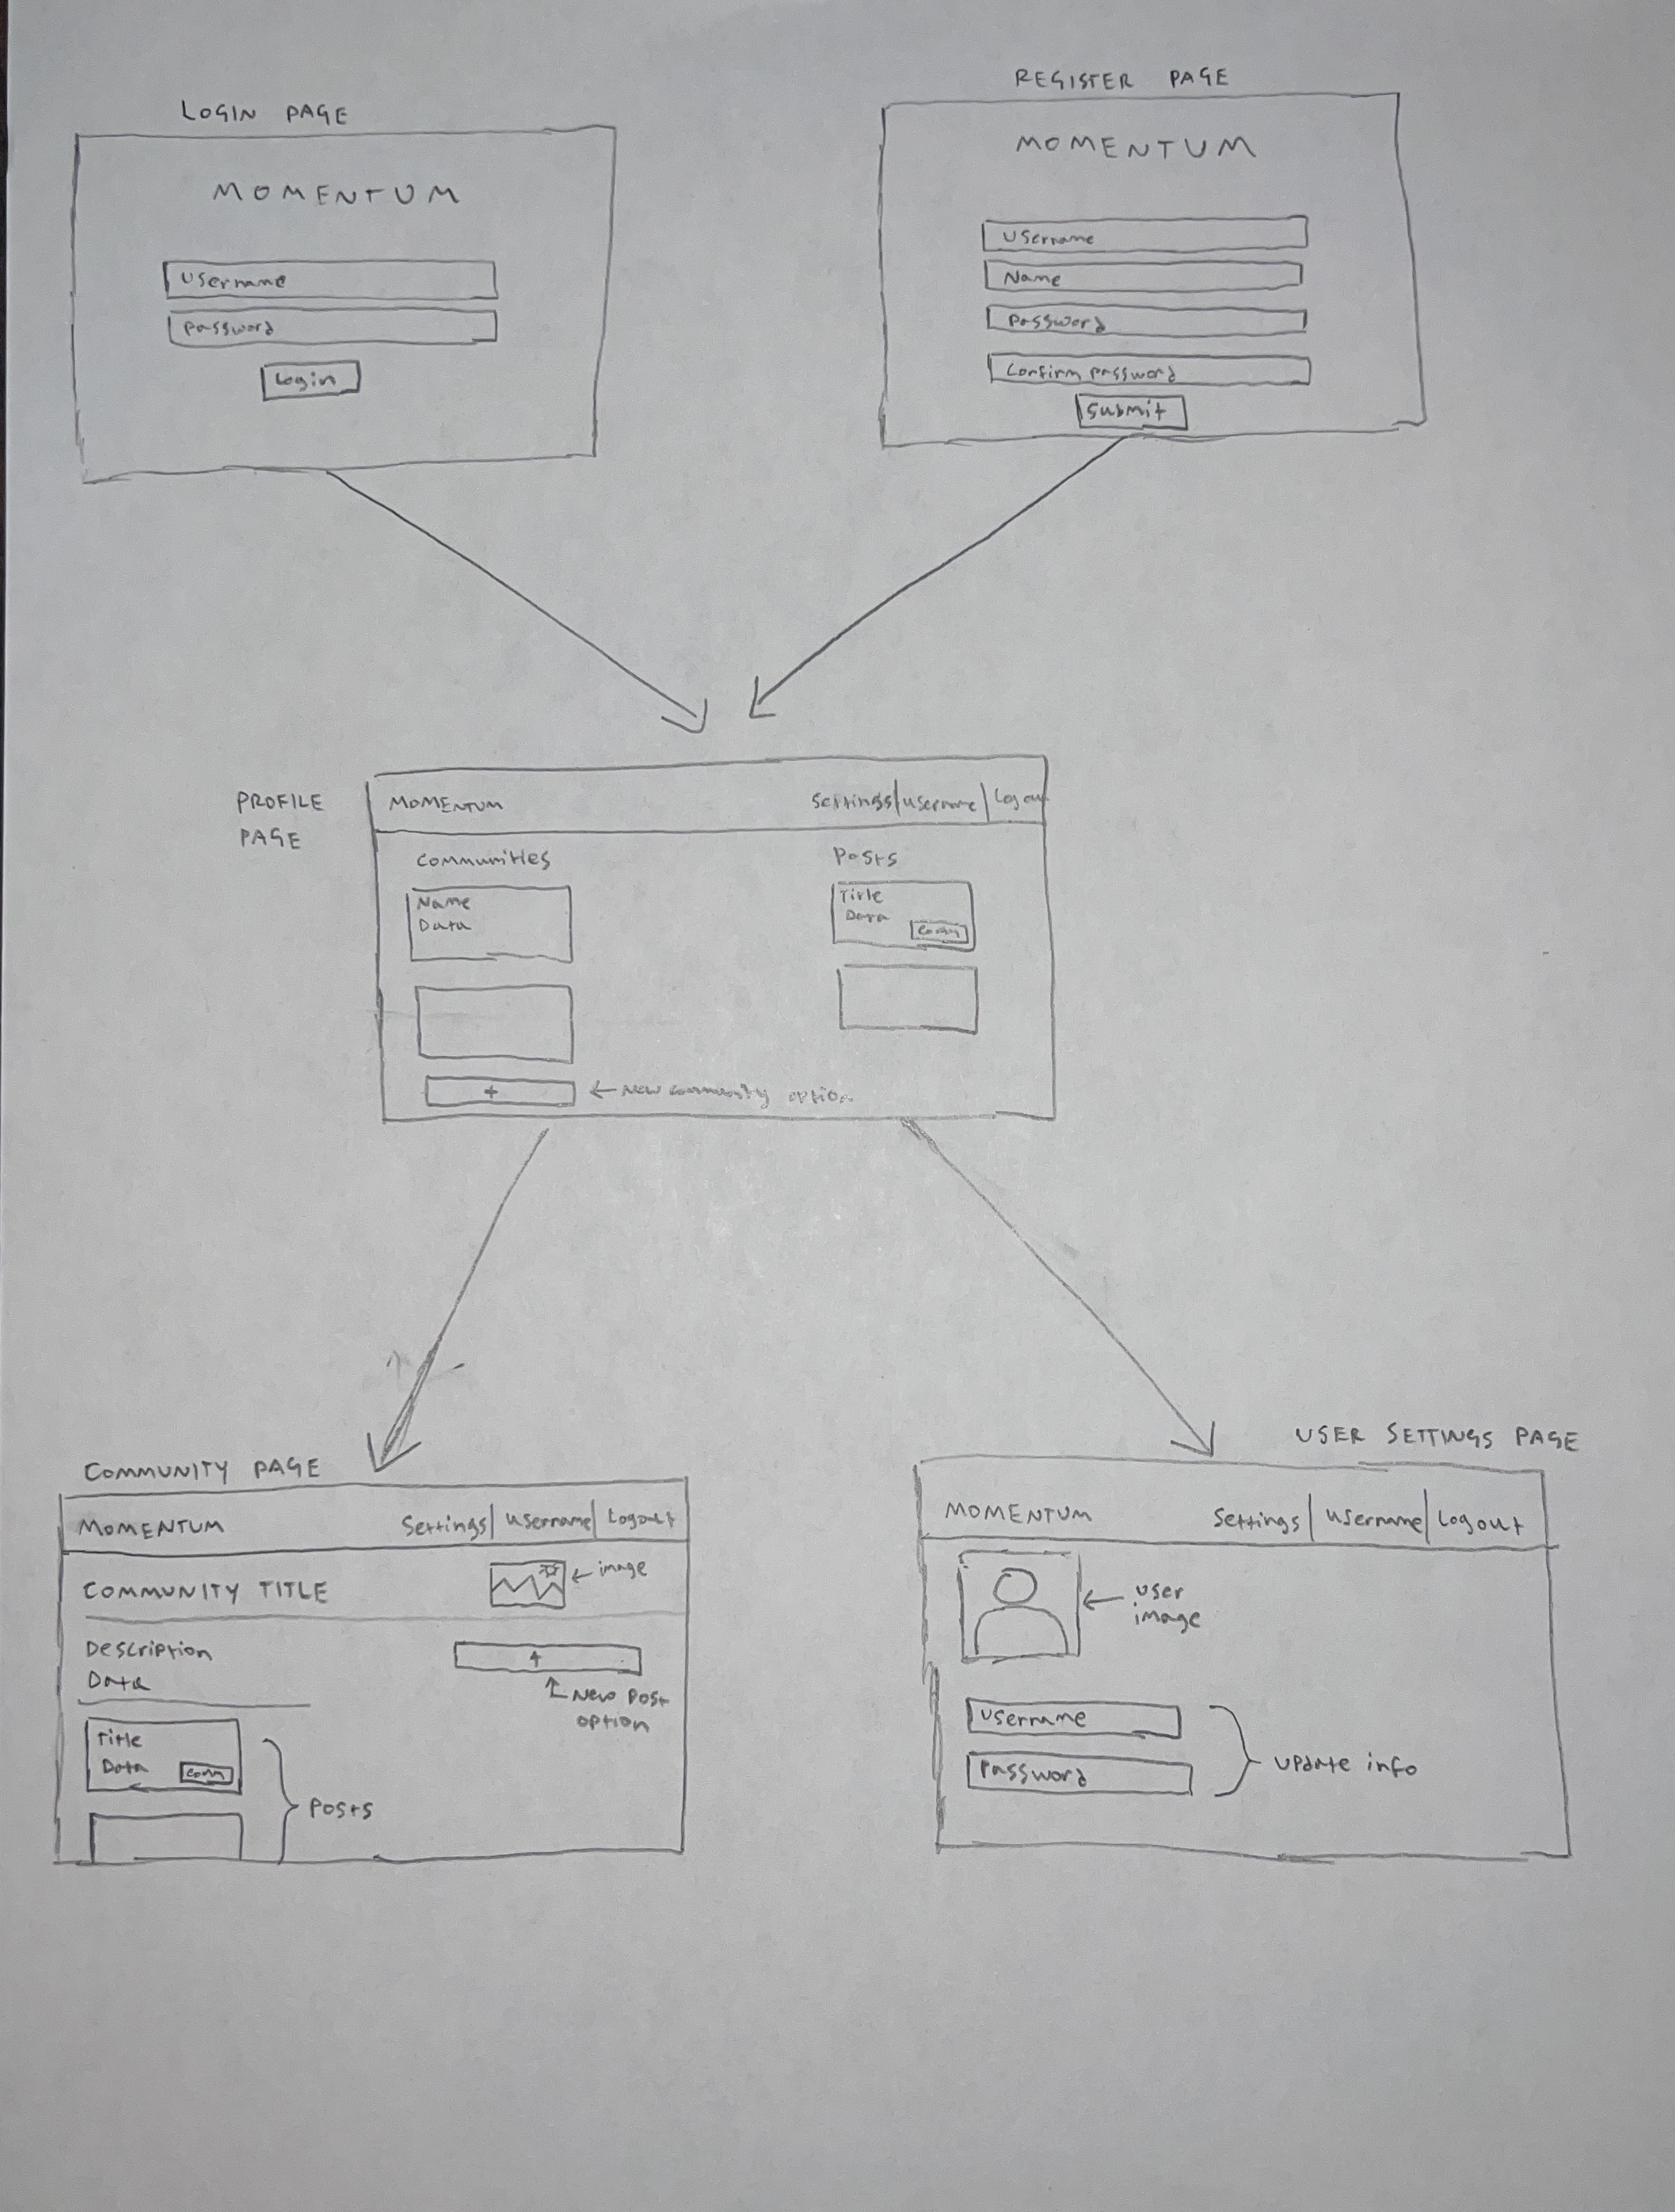 LOGIN PAGE
MOMENTUM
Username
Password
Login
REGISTER PAGE
MOMENTUM
Username
Name
Password
Confirm password
Submit
PROFILE
PAGE
MOMENTUM
Settings | Username | Logout
Communities
Name
Data
+
← New community option
Posts
Title
Data
Comm
COMMUNITY PAGE
MOMENTUM
Settings | Username | Logout
COMMUNITY TITLE
← image
Description
Data
+
New Post
option
Title
Data
Comm
Posts
USER SETTINGS PAGE
MOMENTUM
Settings | Username | Logout
← User
image
Username
Password
Update info